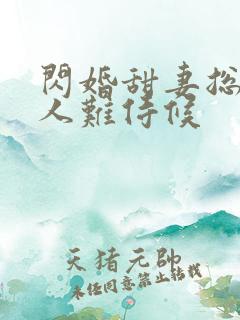 閃婚甜妻総
人難侍候
天猪元帥
未经同意禁止转载